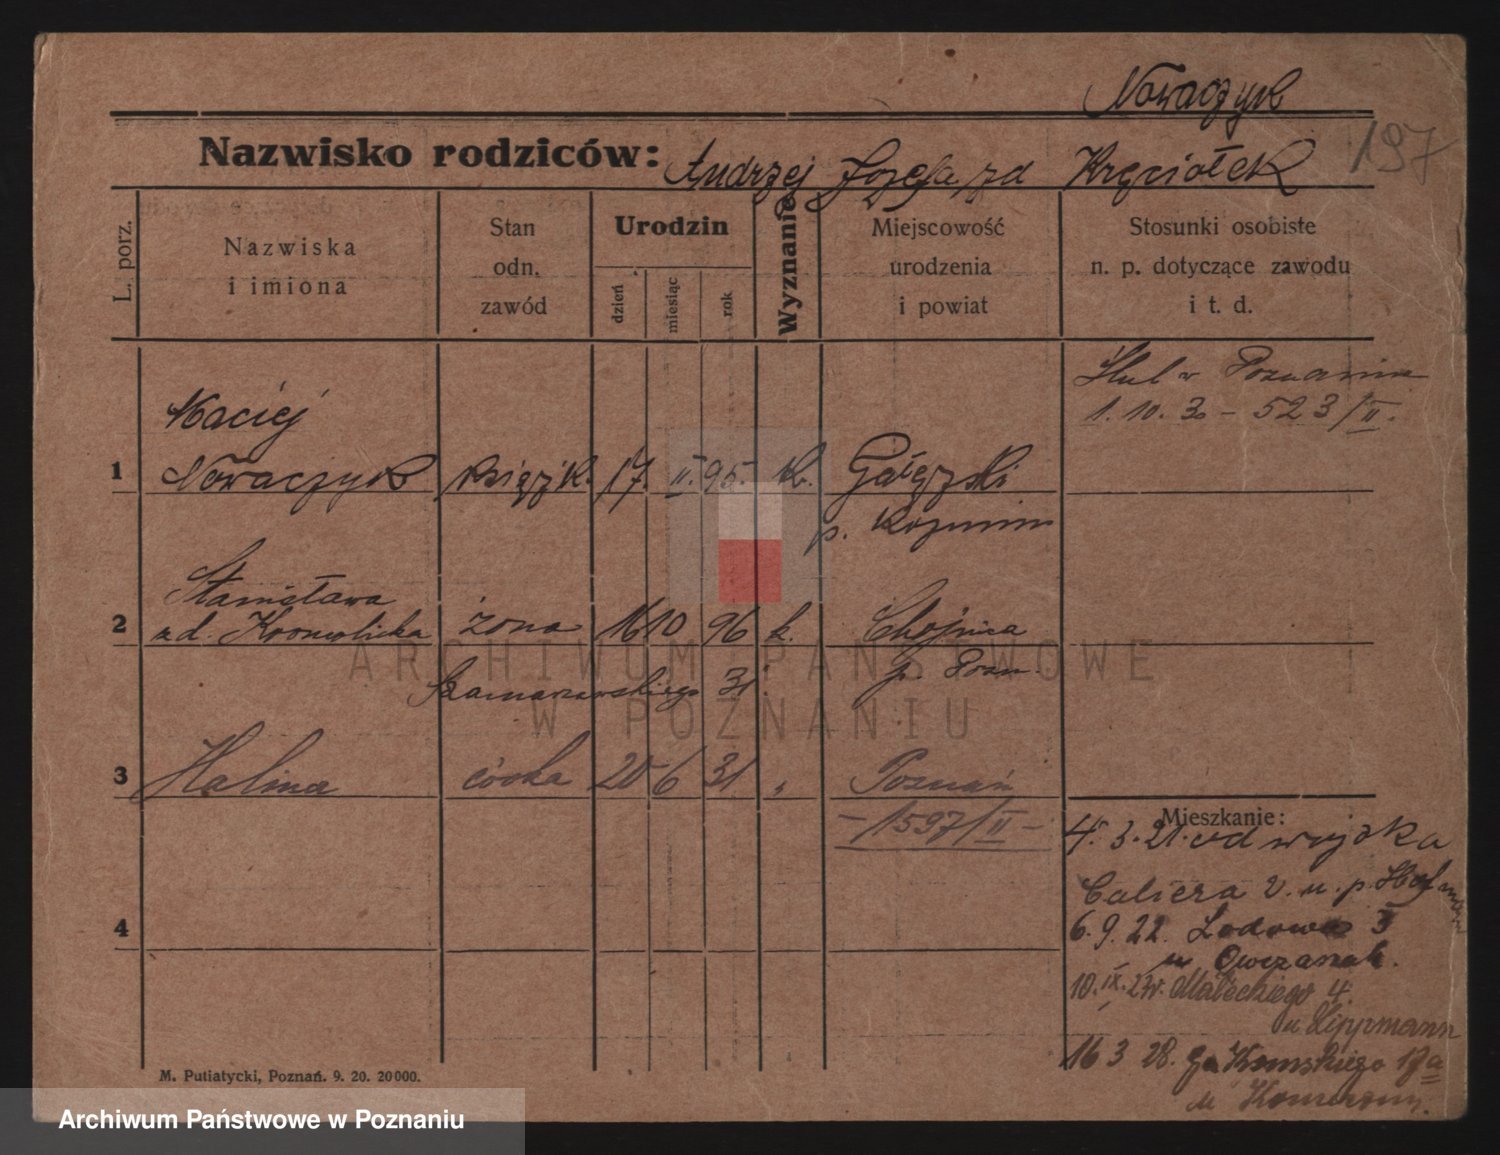 Nowaczyk
197
Nazwisko rodziców: Andrzej Józefa zd Kręciołek
L. porz.
Nazwiska i imiona
Stan odn. zawód
Urodzin
dzień
miesiąc
rok
Wyznanie
Miejscowość urodzenia i powiat
Stosunki osobiste n. p. dotyczące zawodu i t. d.
Ślub w Poznaniu
1. 10. 30 - 523/II.
Maciej
1 Nowaczyk książk. 17. II. 95. k. Gałęzki
p. Koźmin
Stanisława
2 zd. żona 16 10 96 k. Chojnica
p. Pozn.
Szamarzewskiego 31
3 Halina córka 20 6 31 " Poznań
- 1597/II -
Mieszkanie:
4. 3. 21. od wojska
Caliera 2. u. p.
6. 9. 22. Lodowa 3
u Owczarzak.
10. IX. 27. Małeckiego 4.
u Lippmann
16 3 28. 17a
u
4
M. Putiatycki, Poznań. 9. 20. 20000.
ARCHIWUM PAŃSTWOWE
W POZNANIU
Archiwum Państwowe w Poznaniu